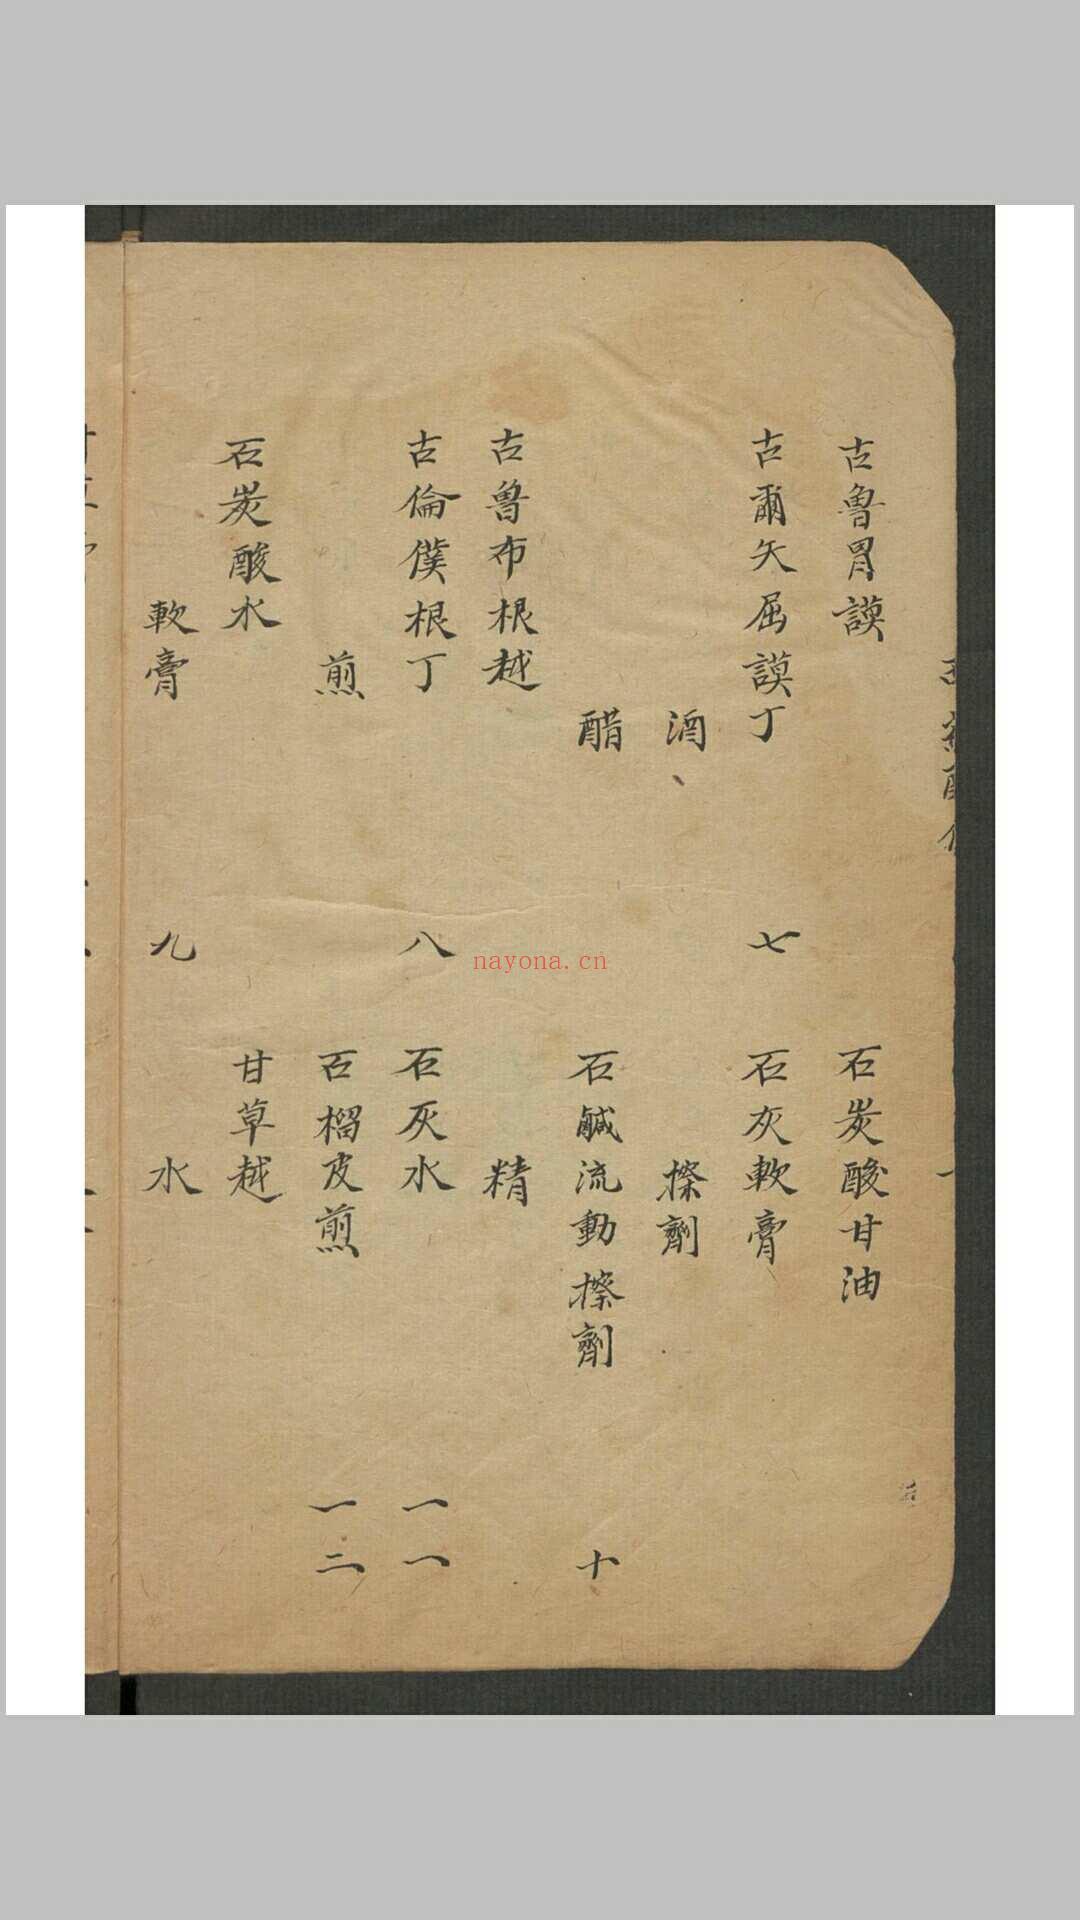 古魯胃謨
古爾矢屈謨丁
七
酒
醋
古魯布根越
古倫僕根丁
八
煎
石炭酸水
軟膏
九
石炭酸甘油
石灰軟膏
擦劑
石鹹流動擦劑
十
精
石灰水
一一
石榴皮煎
一二
甘草越
水
nayona.cn